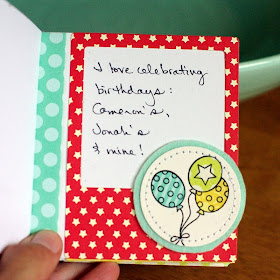 I love celebrating
birthdays:
Cameron's,
Jonah's
& mine!